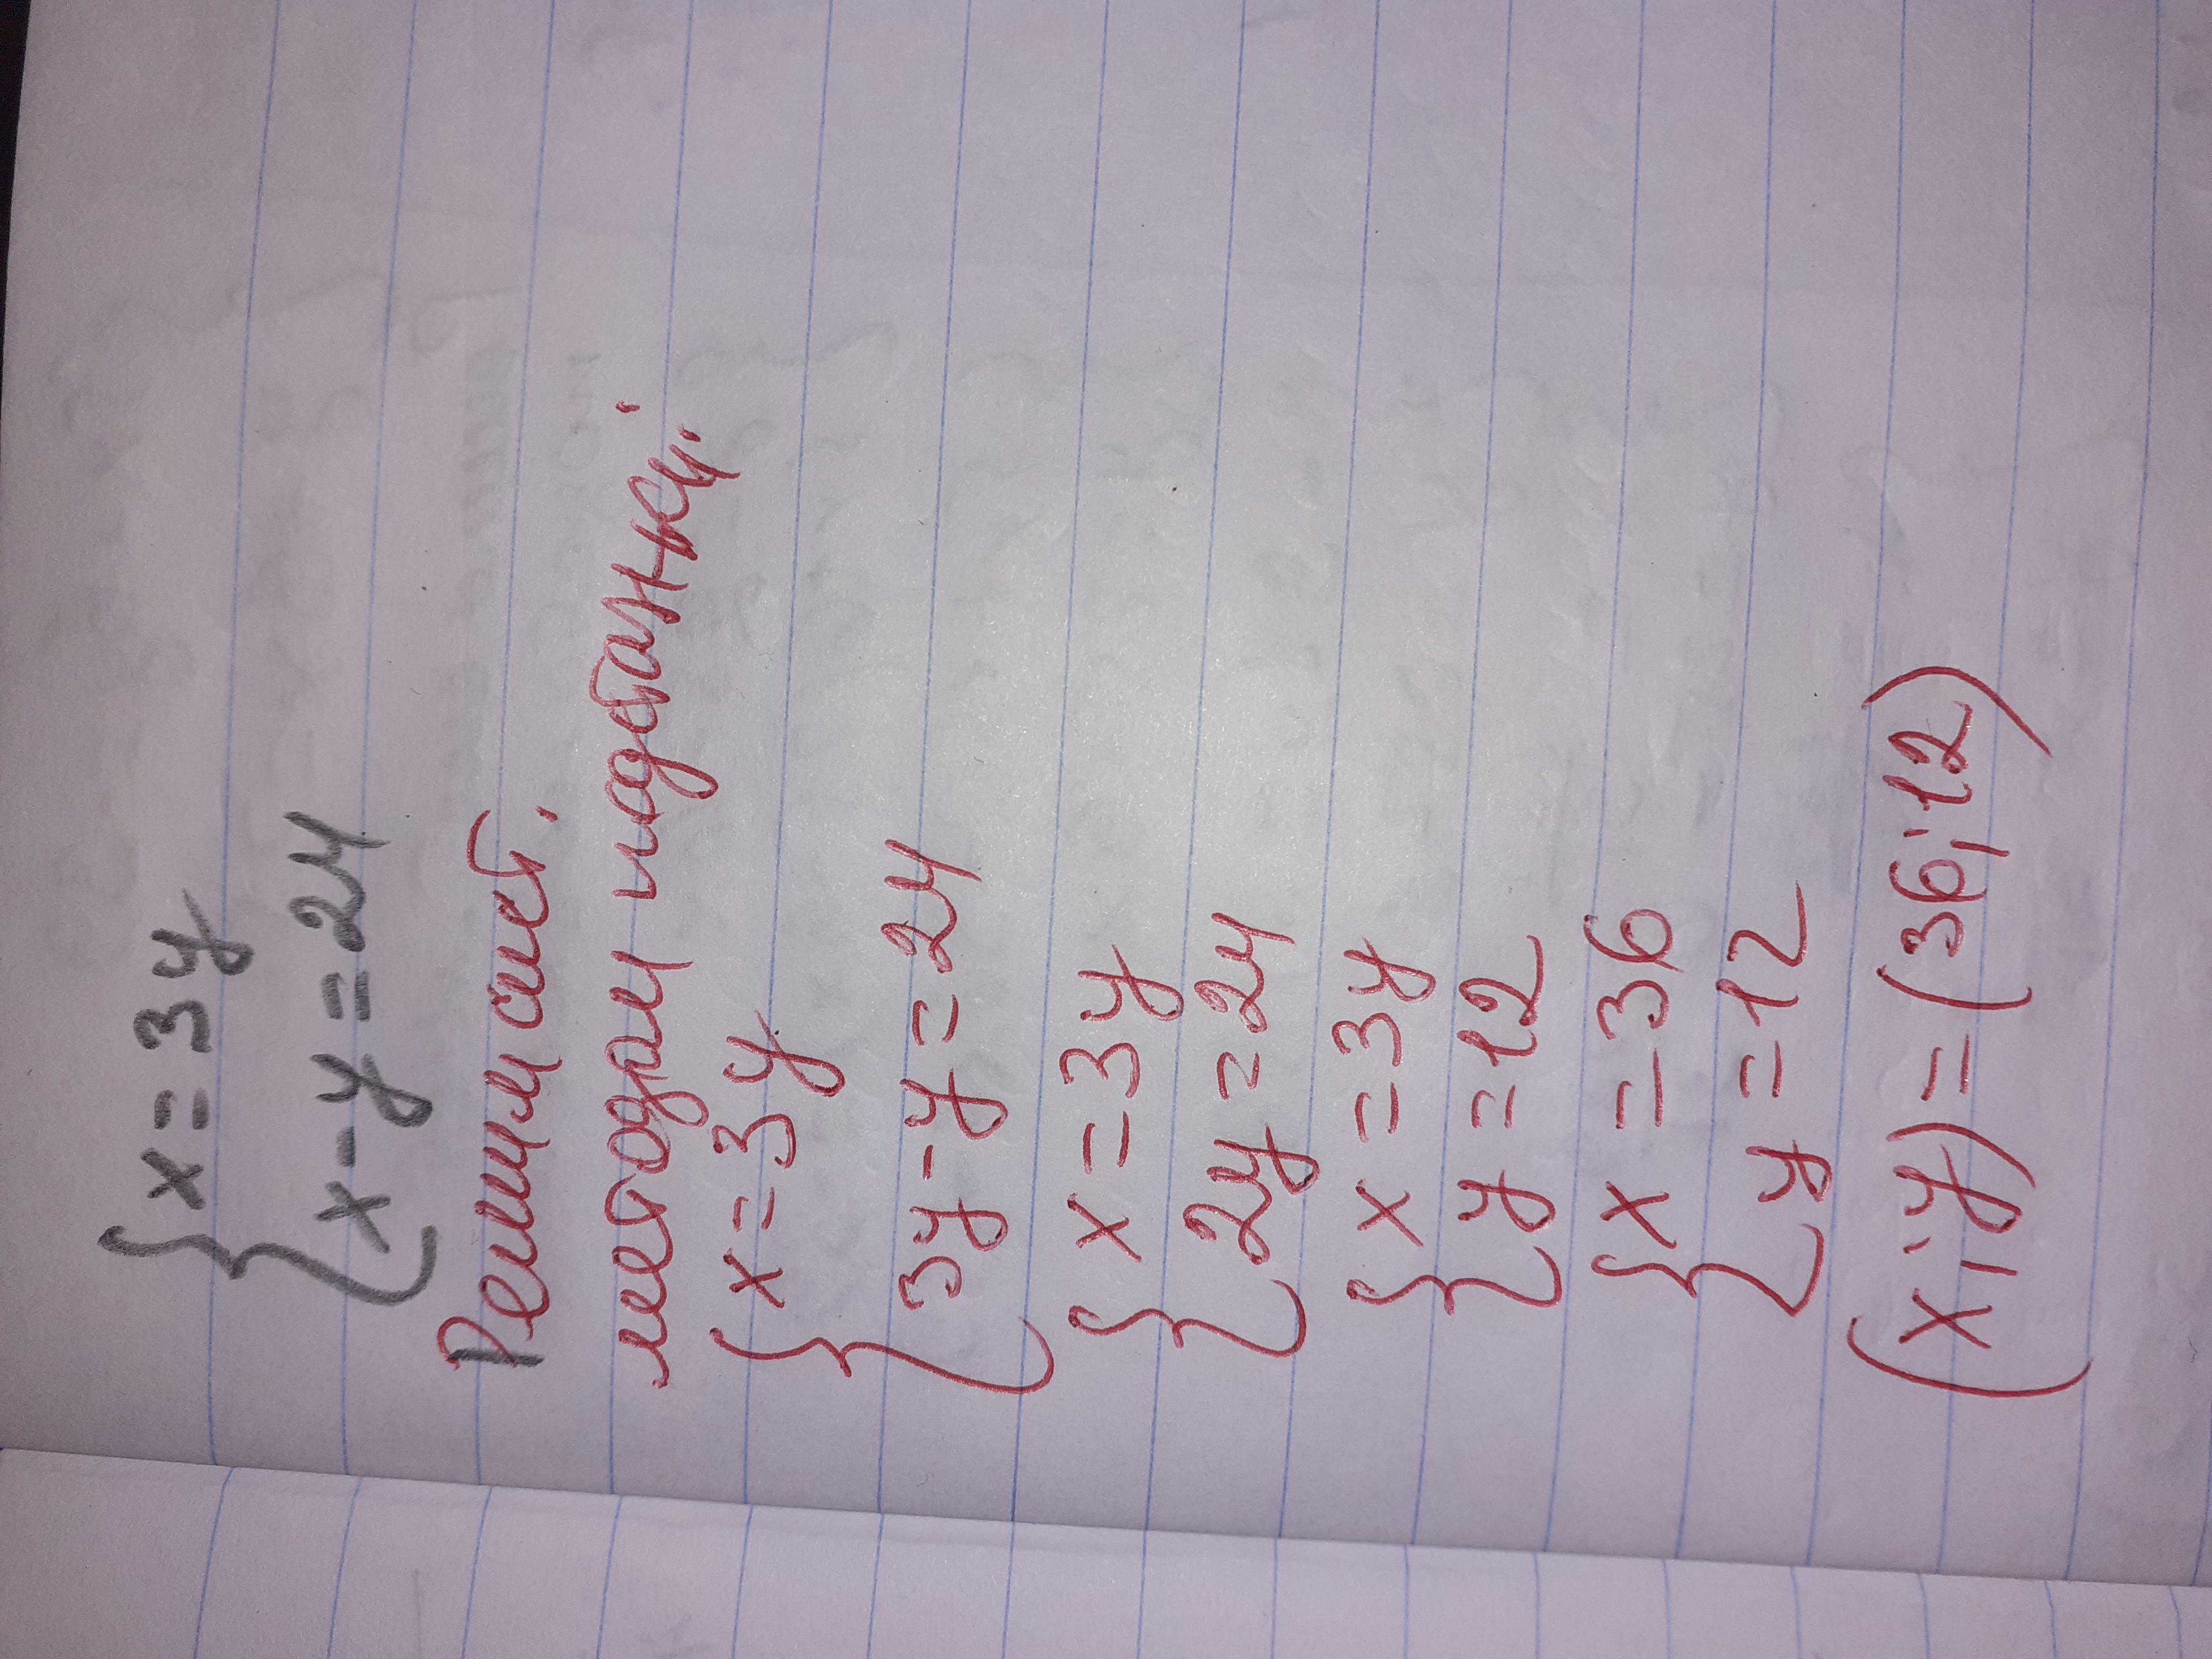 { x = 3y
{ x - y = 24
Решим сист.
методом подстанки:
{ x = 3y
{ 3y - y = 24
{ x = 3y
{ 2y = 24
{ x = 3y
{ y = 12
{ x = 36
{ y = 12
(x; y) = (36; 12)